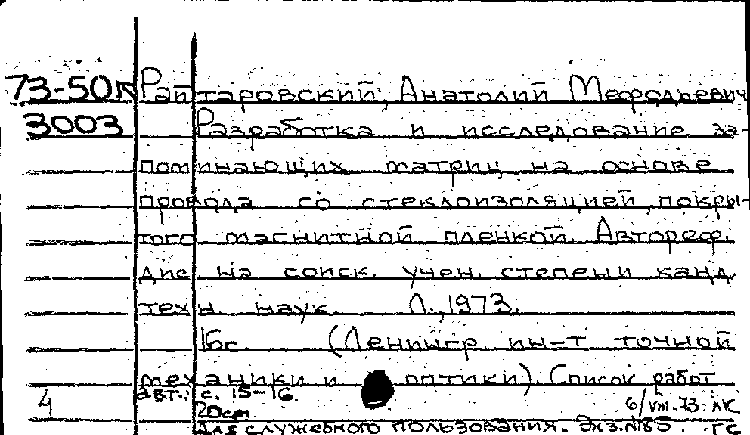 73-50л Райтаровский, Анатолий Мефодьевич
3003 Разработка и исследование за-
поминающих матриц на основе
провода со стеклоизоляцией, покры-
того магнитной пленкой. Автореф.
дис. на соиск. учен. степени канд.
техн. наук. Л., 1973.
16с. (Ленингр. ин-т точной
механики и оптики). Список работ
авт.: с. 15-16.
4 20см 6/VIII-73 ЛК
Для служебного пользования. Экз.№85. ГС